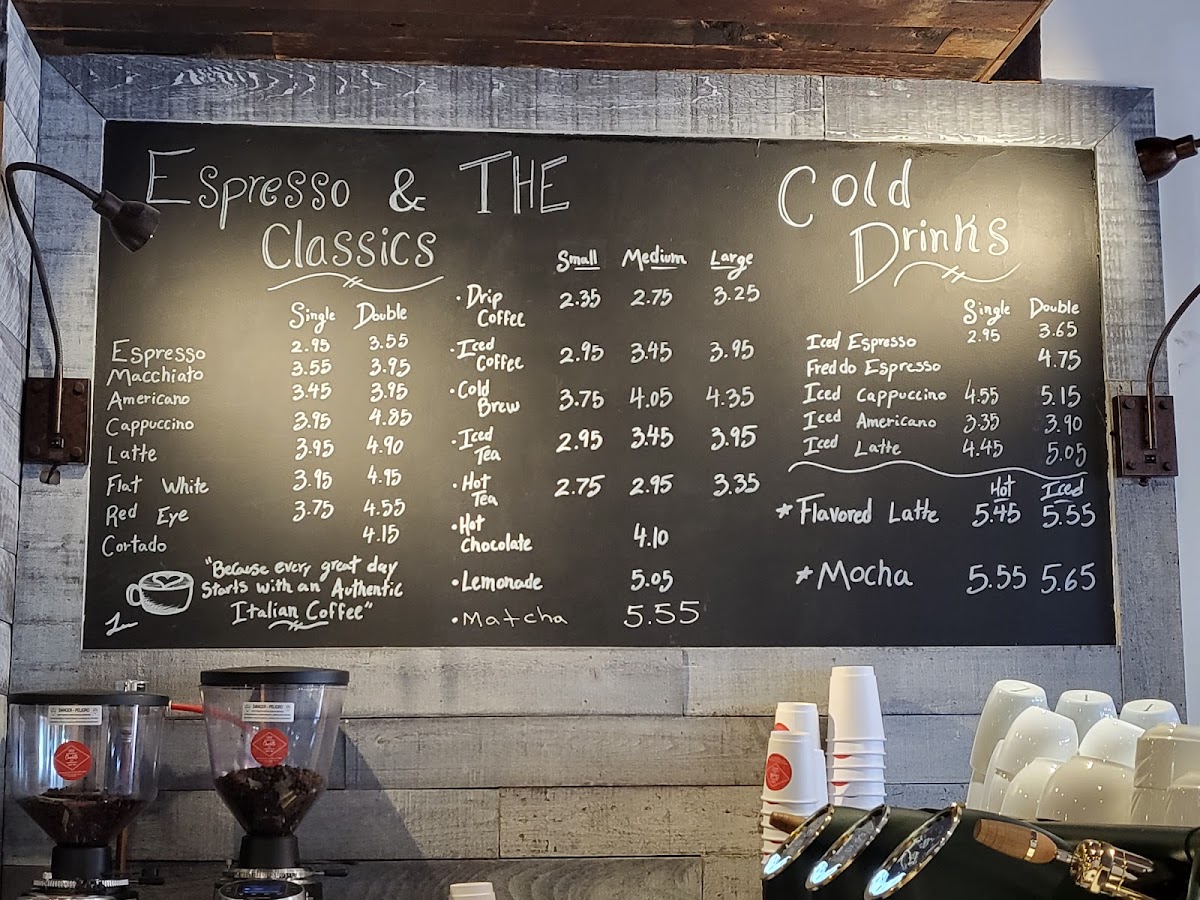 Espresso & THE
Classics
Single Double
Espresso 2.95 3.55
Macchiato 3.55 3.95
Americano 3.45 3.95
Cappuccino 3.95 4.85
Latte 3.95 4.90
Flat White 3.95 4.95
Red Eye 3.75 4.55
Cortado 4.15
"Because every great day
Starts with an Authentic
Italian Coffee"
Small Medium Large
•Drip
Coffee 2.35 2.75 3.25
•Iced
Coffee 2.95 3.45 3.95
•Cold
Brew 3.75 4.05 4.35
•Iced
Tea 2.95 3.45 3.95
•Hot
Tea 2.75 2.95 3.35
•Hot
Chocolate 4.10
•Lemonade 5.05
•Matcha 5.55
Cold
Drinks
Single Double
Iced Espresso 2.95 3.65
Freddo Espresso 4.75
Iced Cappuccino 4.55 5.15
Iced Americano 3.35 3.90
Iced Latte 4.45 5.05
Hot Iced
*Flavored Latte 5.45 5.55
*Mocha 5.55 5.65
DANGER - PELIGRO
DANGER - PELIGRO